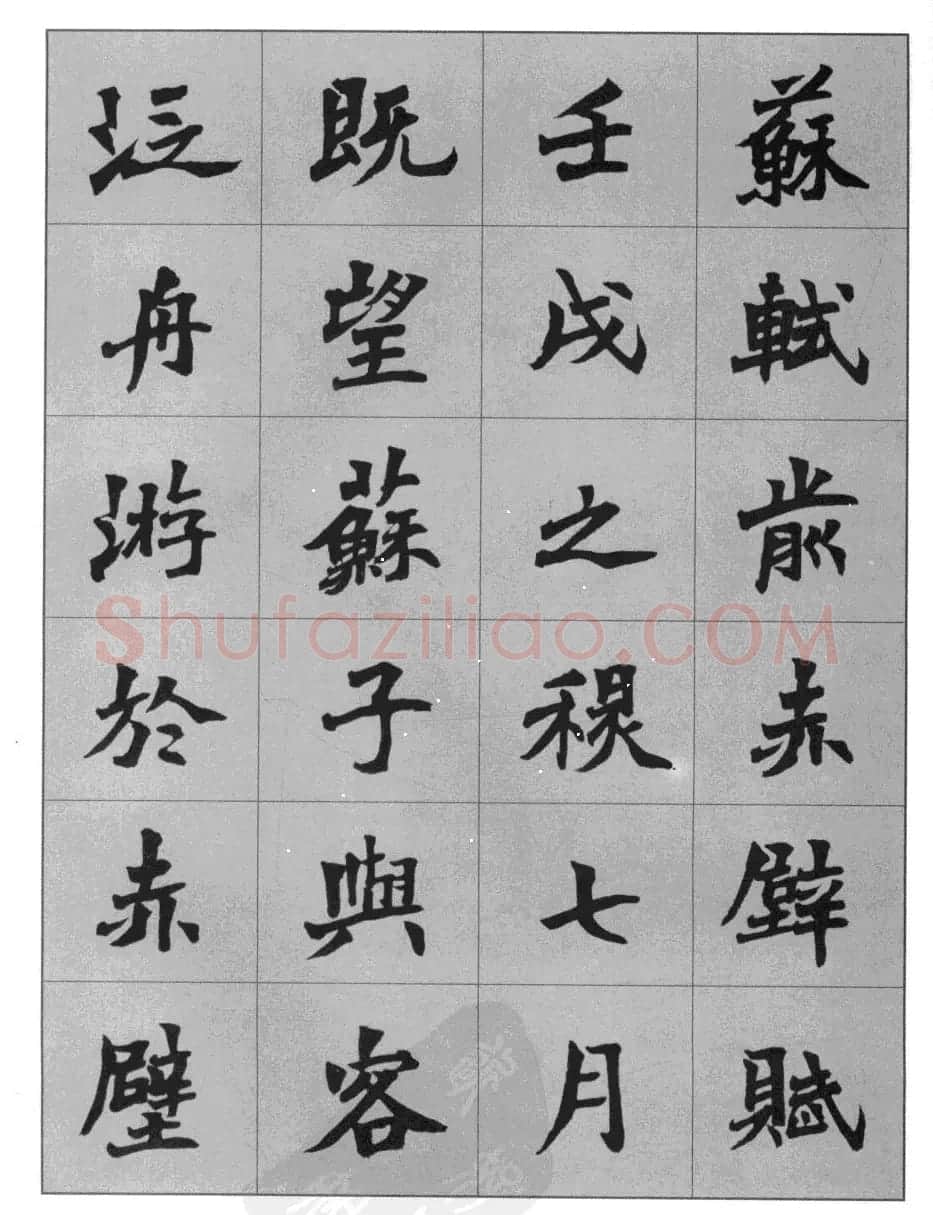 蘇軾前赤壁賦
壬戌之秋七月
既望蘇子與客
泛舟游於赤壁
Shufaziliao.COM